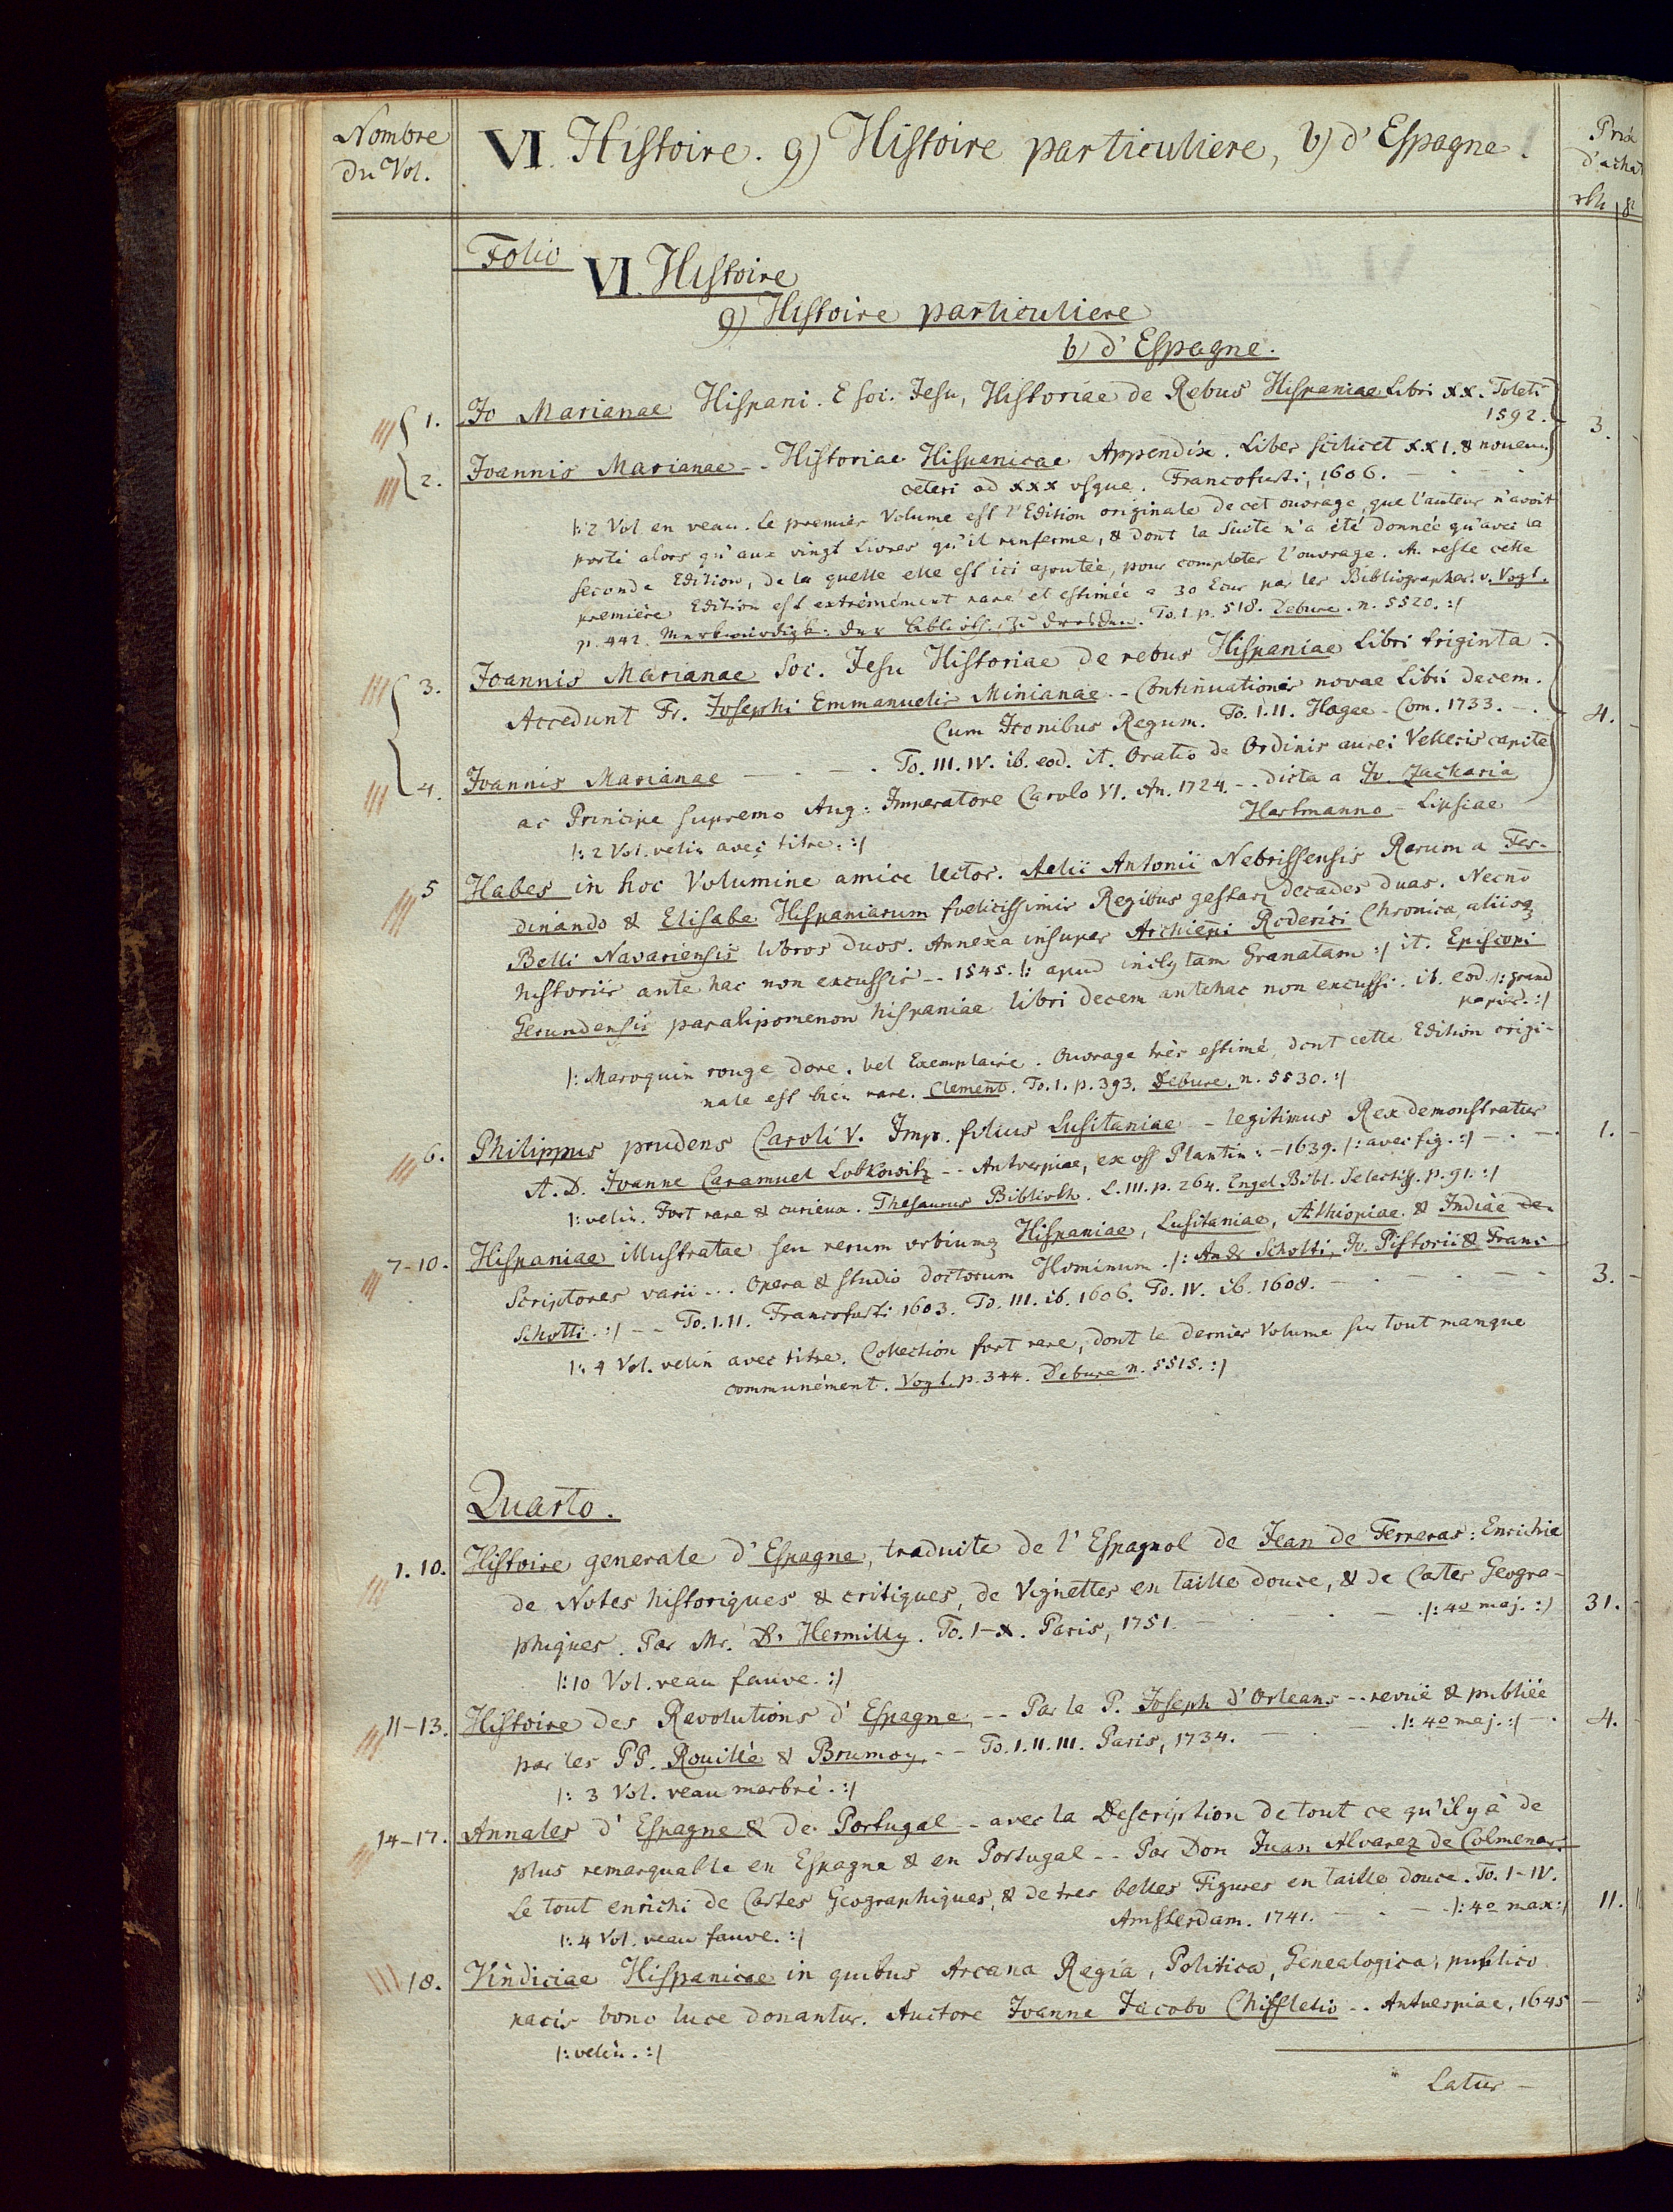 Nombre
du Vol.
VI. Histoire. g) Histoire particuliere, b) d'Espagne.
Prix
d'achat
rth
Folio
VI. Histoire
g) Histoire particuliere
b) d'Espagne.
1. Jo Marianae Hispani. E soc. Jesu, Historiae de Rebus Hispaniae Libri XX. Toleti
1592.
3.
2. Joannis Marianae -- Historiae Hispanicae Appendix. Liber scilicet XXI. & novem
ceteri ad XXX vsque. Francofurti, 1606.
|: 2 Vol en veau. Le premier Volume est l'Edition originale de cet ouvrage, que l'auteur n'avoit
porté alors qu'aux vingt Livres qu'il renferme, & dont la Suite n'a été donnée qu'avec la
seconde Edition, de la quelle elle est ici ajoutée, pour completer l'ouvrage. Au reste cette
première Edition est extrêmément rare et estimée a 30 Ecus par les Bibliographes. v. Vogt.
p. 442. Merkwürdigk. der biblioth. zu Dresden. To. I. p. 518. Debure. n. 5520. :|
3. Joannis Marianae Soc. Jesu Historiae de rebus Hispaniae Libri triginta.
Accedunt Fr. Josephi Emmanuelis Minianae - Continuationis novae Libri decem.
Cum Iconibus Regum. To. I. II. Hagae - Com. 1733. - .
4. -
4. Joannis Marianae - . - . To. III. IV. ib. eod. it. Oratio de Ordinis aurei Velleris capite
ac Principe supremo Aug: Imperatore Carolo VI. An. 1724. -- dicta a Jo. Zacharia
Hartmanno - Lipsiae
|: 2 Vol. velin avec titre. :|
5 Habes in hoc Volumine amice lector. Aelii Antonii Nebrissensis Rerum a Fer-
dinando & Elisabe Hispaniarum foelicissimis Regibus gestar decades duas. Necnō
Belli Navariensis libros duos. Annexa insuper Archiepi Roderici Chronica, aliisq
historiis ante hac non excussis -- 1545. |: apud inclytam Granatam :| it. Episcopi
Gerundensis paralipomenon hispaniae libri decem antehac non excussi. ib. eod. |: grand
papier. :|
|: Maroquin rouge doré. bel Exemplaire. Ouvrage très estimé, dont cette Edition origi-
nale est bien rare. Clement. To. I. p. 393. Debure. n. 5530. :|
6. Philippus prudens Caroli V. Imp. filius Lusitaniae - legitimus Rex demonstratus
A. D. Joanne Caramuel Lobkowitz -- Antverpiae, ex off Plantin: - 1639. |: avec fig. :| - . -
1. -
|: velin. Fort rare & curieux. Thesaurus Biblioth. L. III. p. 264. Engel Bibl. Selectiss. p. 91. :|
7-10. Hispaniae illustratae seu rerum urbiumq Hispaniae, Lusitaniae, Aethiopiae & Indiae
Scriptores varii ... Opera & studio doctorum Hominum. |: And Schotti, Jo. Pistorii & Franc
Schotti. :| -- To. I. II. Francofurti 1603. To. III. ib. 1606. To. IV. ib. 1608. - . - . - -
3. -
|: 4 Vol. velin avec titre. Collection fort rare, dont le dernier Volume sur tout manque
communément. Vogt. p. 344. Debure n. 5515. :|
Quarto.
1. 10. Histoire generale d'Espagne, traduite de l'Espagnol de Jean de Ferreras: Enrichie
de Notes historiques & critiques, de Vignettes en taille douce, & de Cartes Geogra-
phiques. Par Mr. D'Hermilly. To. I-X. Paris, 1751. - . - . |: 4o maj. :|
31. -
|: 10 Vol. veau fauve. :|
11-13. Histoire des Revolutions d'Espagne -- Par le P. Joseph d'Orleans -- revüe & publiée
par les PP. Rouillé & Brumoy -- To. I. II. III. Paris, 1734. - . - . |: 4o maj. :| - .
4. -
|: 3 Vol. veau marbré. :|
14-17. Annales d'Espagne & de Portugal - avec la Description de tout ce qu'il y à de
plus remarquable en Espagne & en Portugal -- Par Don Juan Alvarez de Colmenar.
Le tout enrichi de Cartes Geographiques, & de tres belles Figures en taille douce. To. I-IV.
Amsterdam. 1741. - . - |: 4o max :|
11.
|: 4 Vol. veau fauve. :|
18. Vindiciae Hispanicae in quibus Arcana Regia, Politica, Genealogica, publico
pacis bono luce donantur. Auctore Joanne Jacobo Chiffletio -- Antuerpiae, 1645 -
|: velin. :|
Latus -